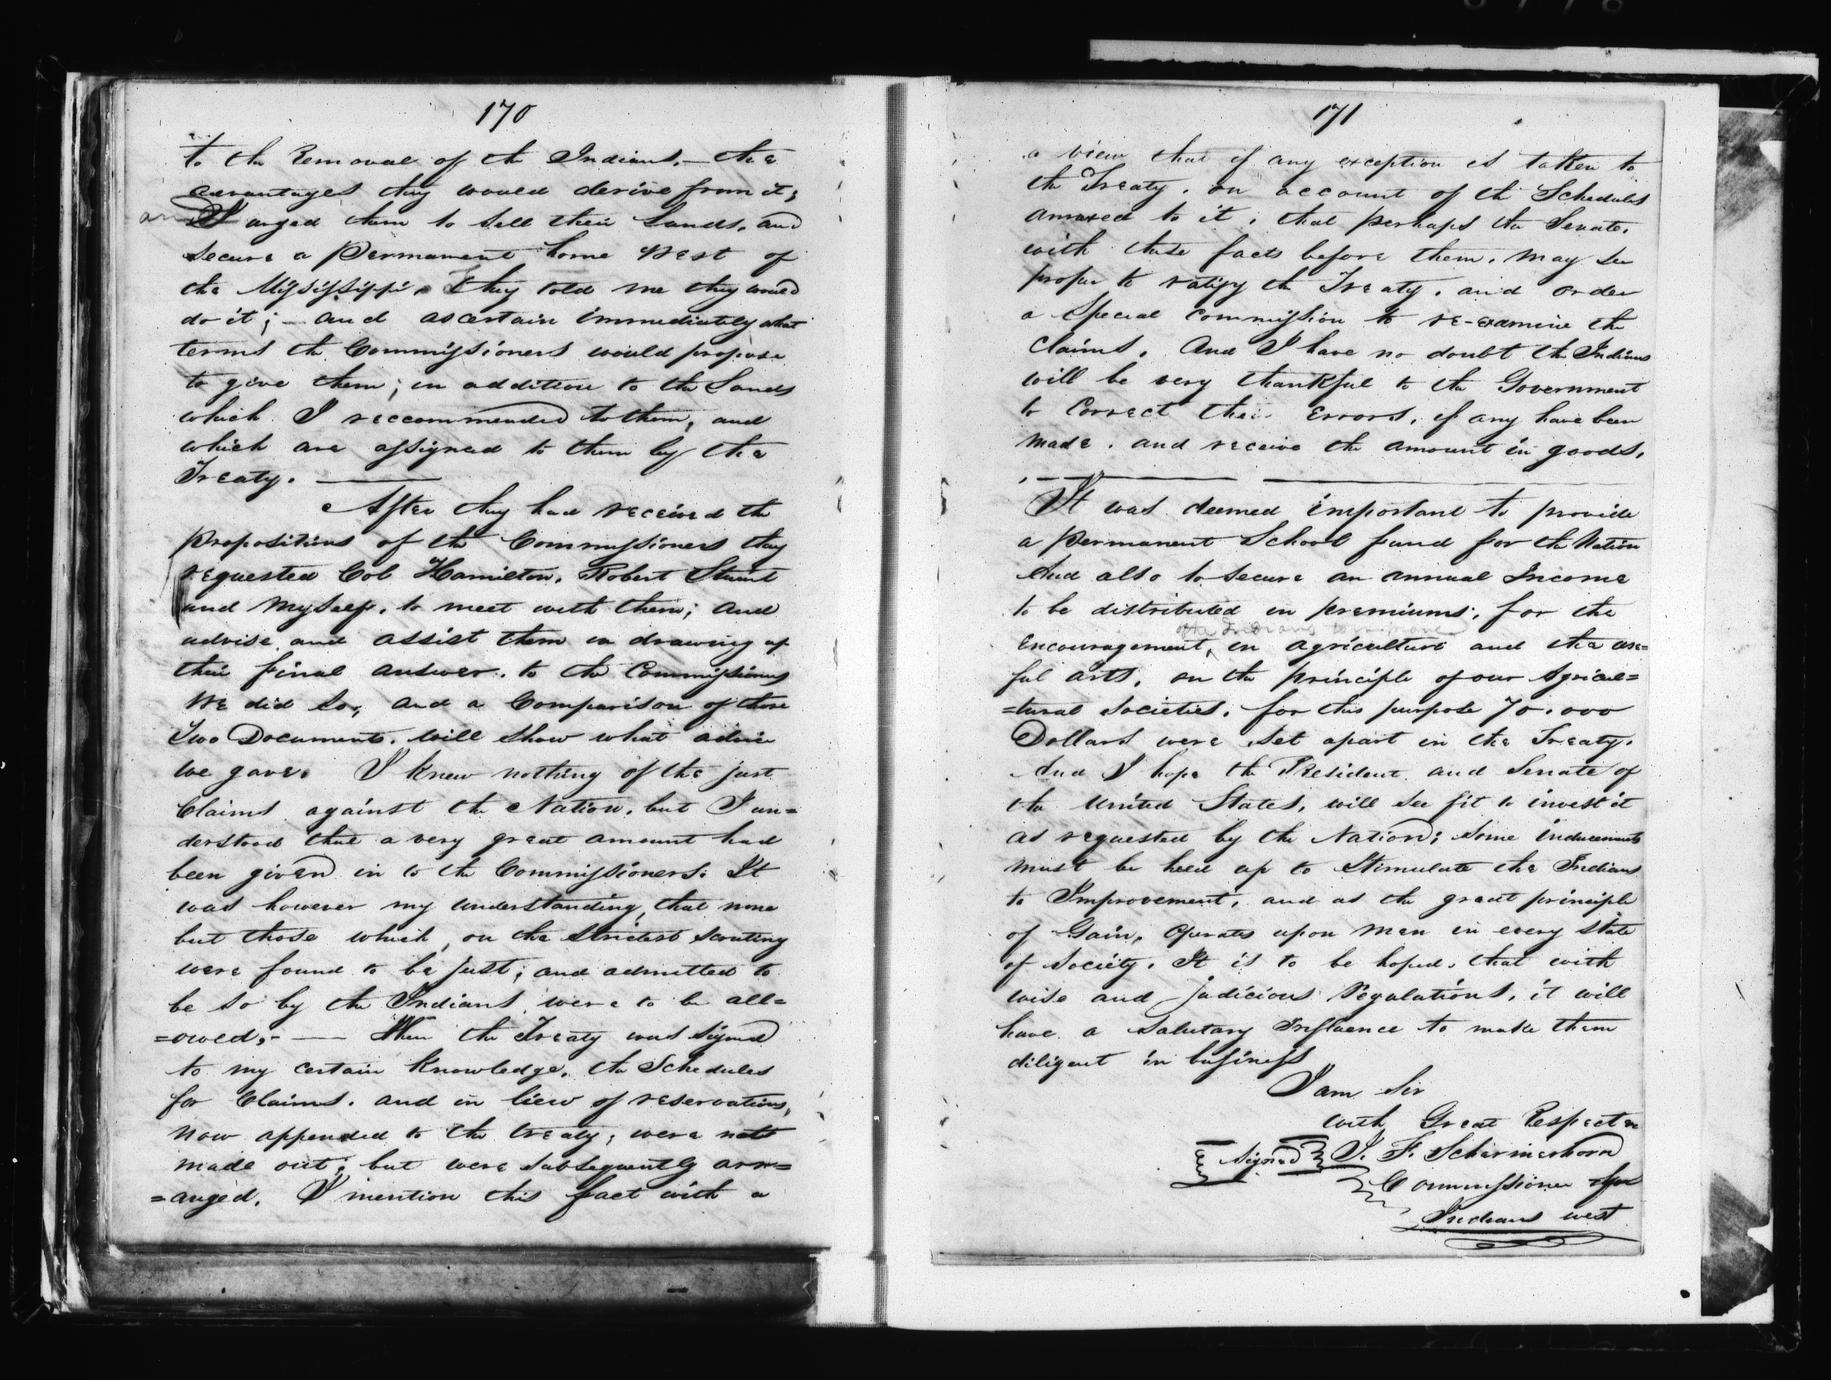 170
to the Removal of the Indians, — the
advantages they would derive from it;
and I urged them to sell their Lands, and
secure a Permanent home West of
the Missisippi. They told me they would
do it; — and ascertain immediately what
terms the Commissioners would propose
to give them; in addition to the Lands
which I reccommended to them, and
which are assigned to them by the
Treaty. —
After they had received the
propositions of the Commissioners they
requested Col Hamilton, Robert Stuart
and myself, to meet with them; and
advise and assist them in drawing up
their final answer, to the Commissioners
We did so; and a Comparison of those
Two Documents, will show what advice
we gave. I knew nothing of the just
Claims against the Nation, but I un=
derstood that a very great amount had
been given in to the Commissioners: It
was however my understanding, that none
but those which, on the strictest scrutiny
were found to be just; and admitted to
be so by the Indians were to be all=
=owed; — When the Treaty was signed
to my certain knowledge, the Schedules
for Claims, and in liew of reservations,
now appended to the treaty; were not
made out; but were subsequently arr=
=anged. I mention this fact with a
171
a view that if any exception is taken to
the Treaty, on account of the Schedules
annexed to it, that perhaps the Senate,
with these facts before them, may see
proper to ratify the Treaty, and order
a Special Commission to re-examine the
Claims, And I have no doubt the Indians
will be very thankful to the Government
to Correct their Errors, if any have been
made, and receive the amount in goods.
It was deemed important to provide
a permanent School fund for the Nation
And also to secure an annual Income
to be distributed in premiums, for the
of the Indians to improve
encouragement, in agriculture and the use=
ful arts, on the principle of our Agricul=
=tural Societies, for this purpose 70.000
Dollars were set apart in the Treaty.
And I hope the President and Senate of
the United States, will see fit to invest it
as requested by the Nation; Some inducements
must be held up to Stimulate the Indians
to Improvement, and as the great principle
of Gain, operates upon men in every state
of Society. It is to be hoped, that with
wise and judicious Regulations, it will
have a salutary Influence to make them
diligent in business
I am Sir
with Great Respect &
Signed J. F. Schermerhorn
Commissioner for
Indians west